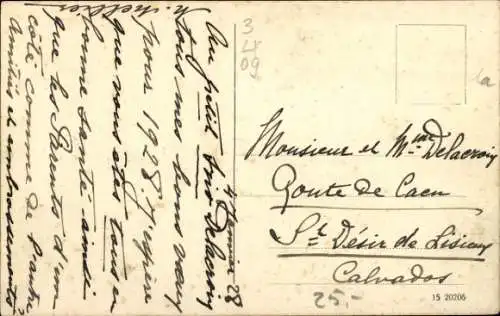 4 Janvier 28
Au petit trio Delacroix
Tous mes bons vœux
pour 1928. J'espère
que vous êtes tous en
bonne santé ainsi
que les Parents d'un
côté comme de l'autre
Amitiés et embrassements
Monsieur et Mme Delacroix
Route de Caen
St Désir de Lisieux
Calvados
25.-
15 20206
3
4
09